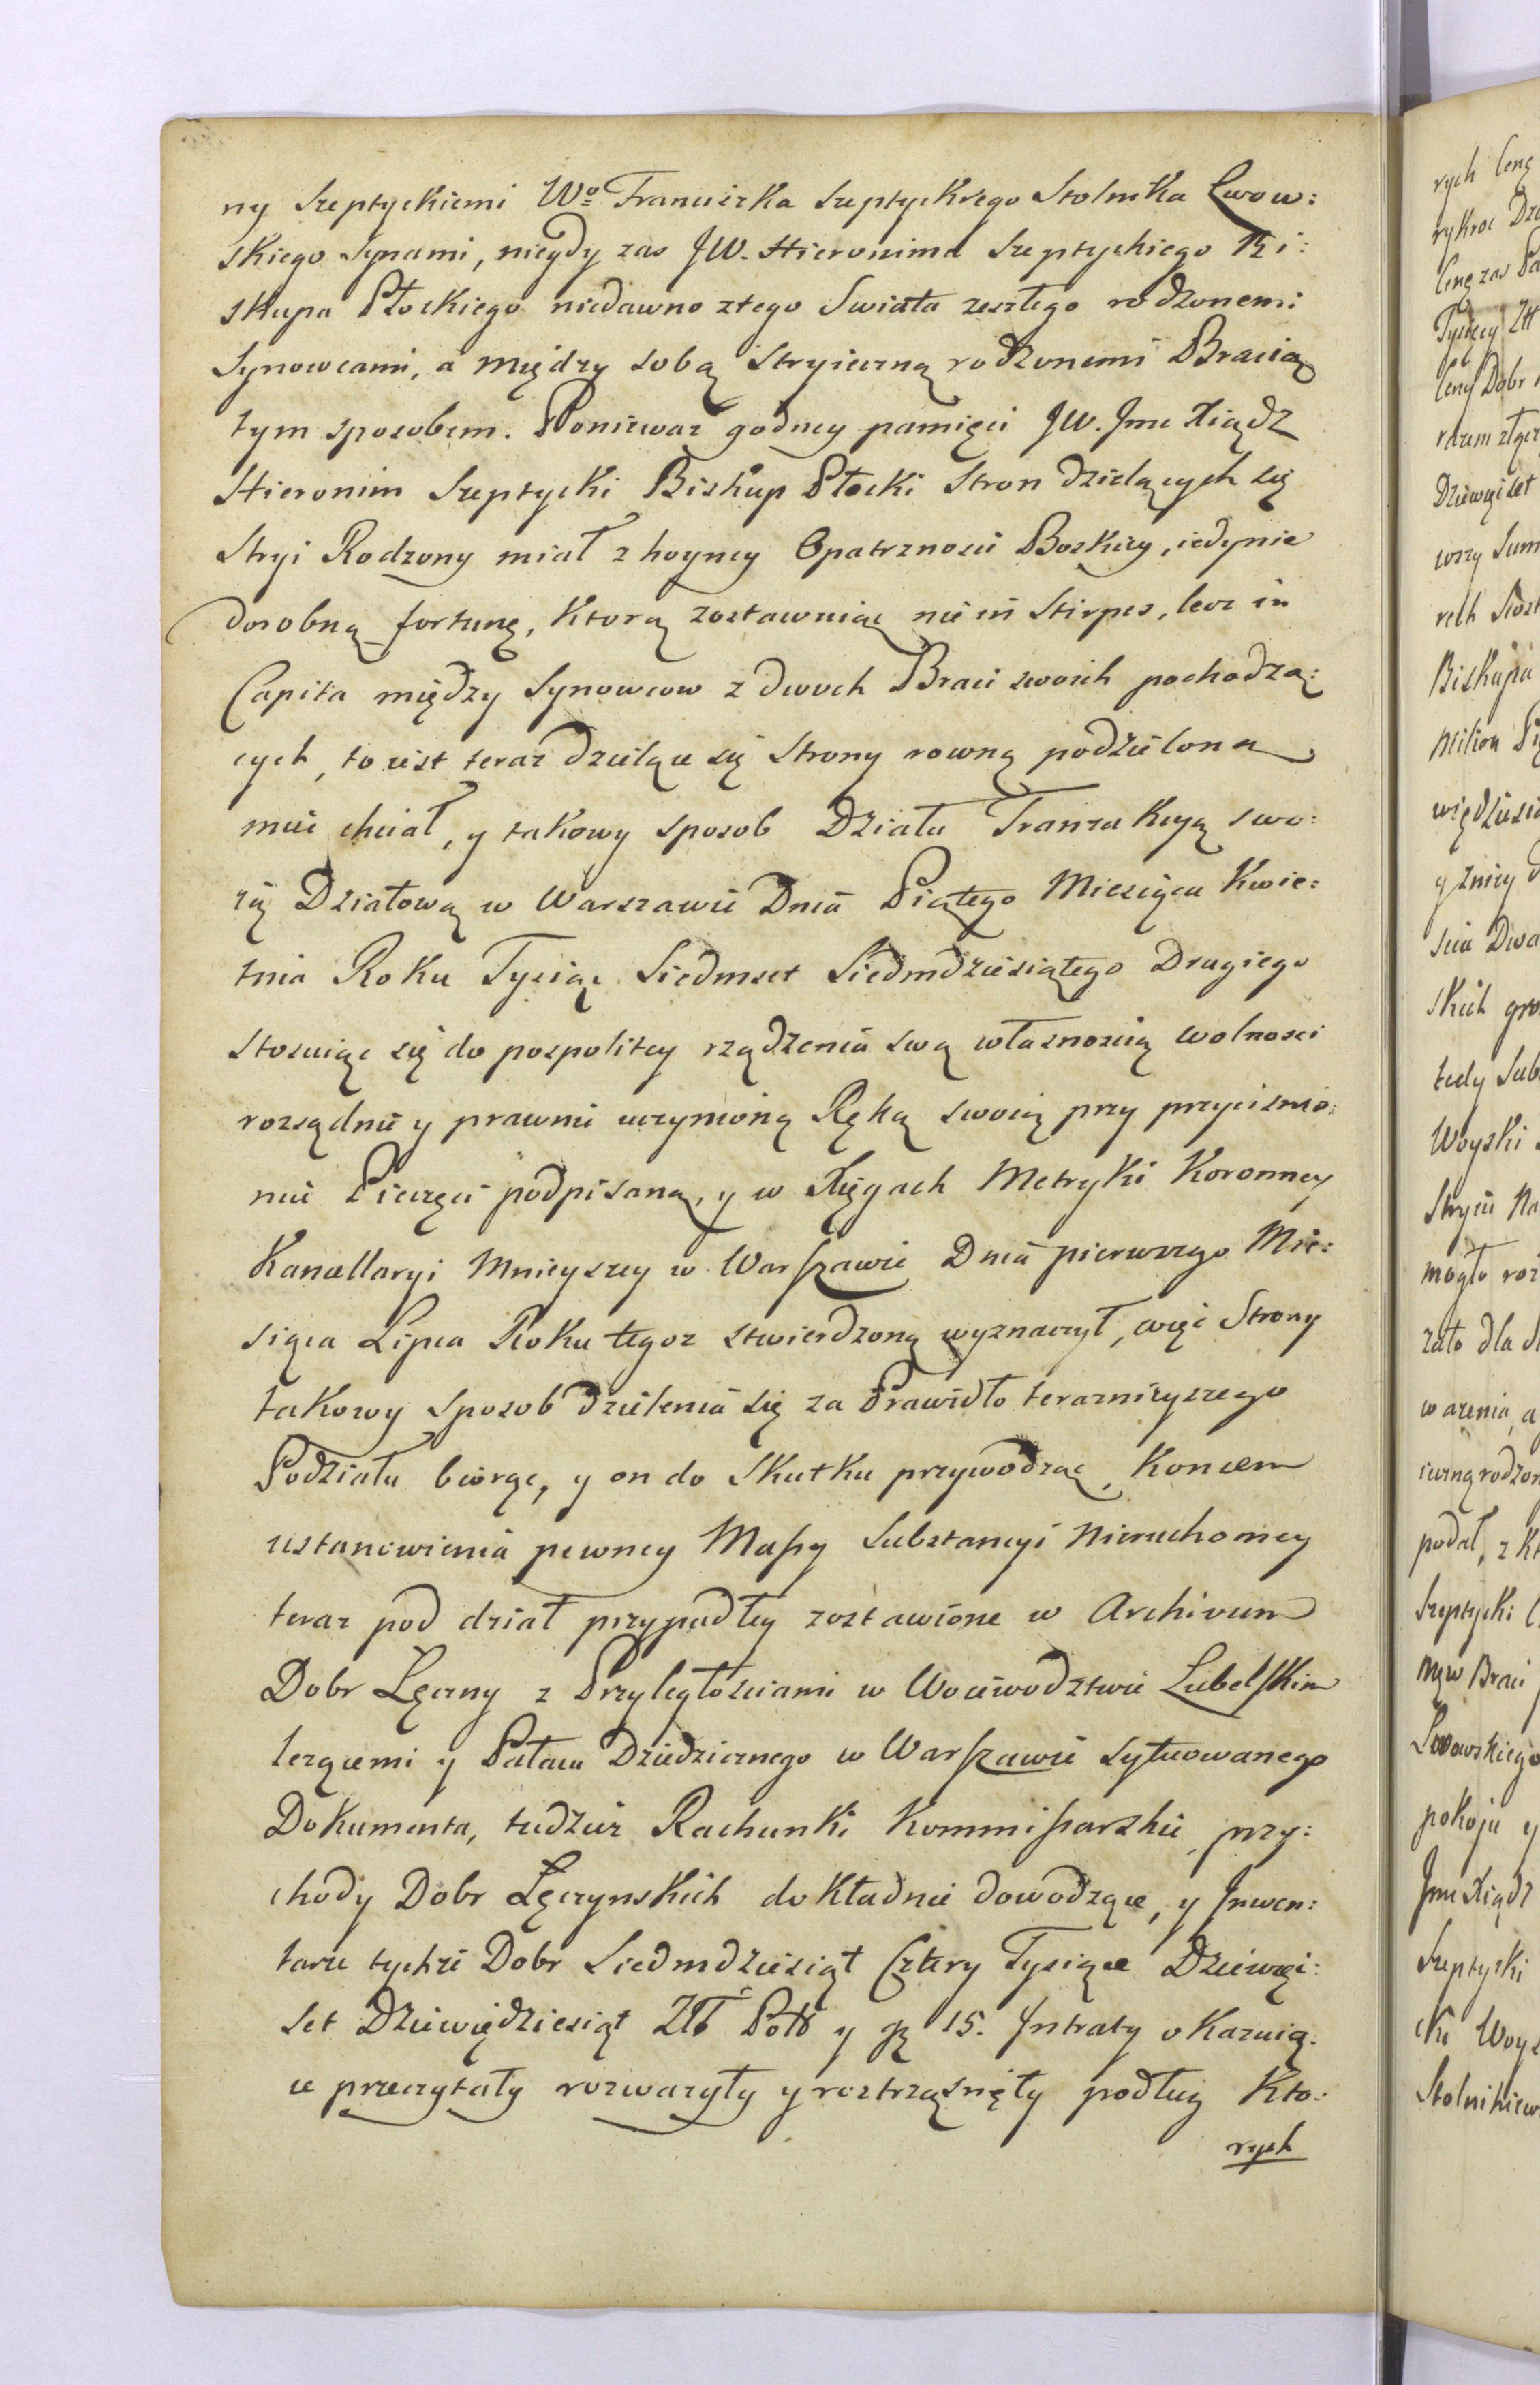 ny Szeptyckiemi Wo Franciszka Szeptyckiego Stolnika Lwow:
skiego Synami, niegdy zas JW. Hieronima Szeptyckiego Bi:
skupa Płockiego niedawno ztego Swiata zeszłego rodzonemi
Synowcami, a między sobą Stryieczną rodzonemi Bracią
tym sposobem. Poniewaz godney pamięci JW. Jmc Xiądz
Hieronim Szeptycki Biskup Płocki Stron dzielących się
Stryi Rodzony miał z hoyney Opatrznosci Boskiey, iedynie
dorobną fortunę, Ktorą zostawuiąc nie in Stirpes, lecz in
Capita między Synowcow z dwoch Braci swoich pochodzą:
cych, to iest teraz dzielące się Strony rowną podzieloną
miec chciał, y takowy sposob Działu Tranzakcyą swo:
ią Działową w Warszawie Dnia Piątego Miesiąca Kwie:
tnia Roku Tysiąc Siedmset Siedmdziesiątego Drugiego
stosuiąc się do pospolitey rządzenia swą własnoscią wolnosci
rozsądnie y prawnie uczynioną Ręką swoią przy przycisnie:
niu Pieczęci podpisaną, y w Xięgach Metryki Koronney
Kancellaryi Mnieyszey w Warszawie Dnia pierwszego Mie:
siąca Lipca Roku tegoz stwierdzoną wyznaczył, więc Strony
takowy sposob dzielenia się za Prawidło teraznieyszego
Podziału biorąc, y on do skutku przywodząc, Koncem
ustanowienia pewney Massy Substancyi Nieruchomey
teraz pod dział przypadłey zostawione w Archivum
Dobr Łęczny z Przyległosciami w Woiewodztwie Lubelskim
lezącemi y Pałacu Dziedzicznego w Warszawie sytuowanego
Dokumenta, tudziez Rachunki Kommissarskie, przy:
chody Dobr Łęczynskich dokładnie dowodzące, y Inwen:
tarze tychze Dobr Siedmdziesiąt Cztery Tysiące Dziewięc:
set Dziewiędziesiąt Zł Pol y gr 15. Intraty okazuią:
ce przeczytały rozwazyły y roztrząsnęły podług Kto:
rych